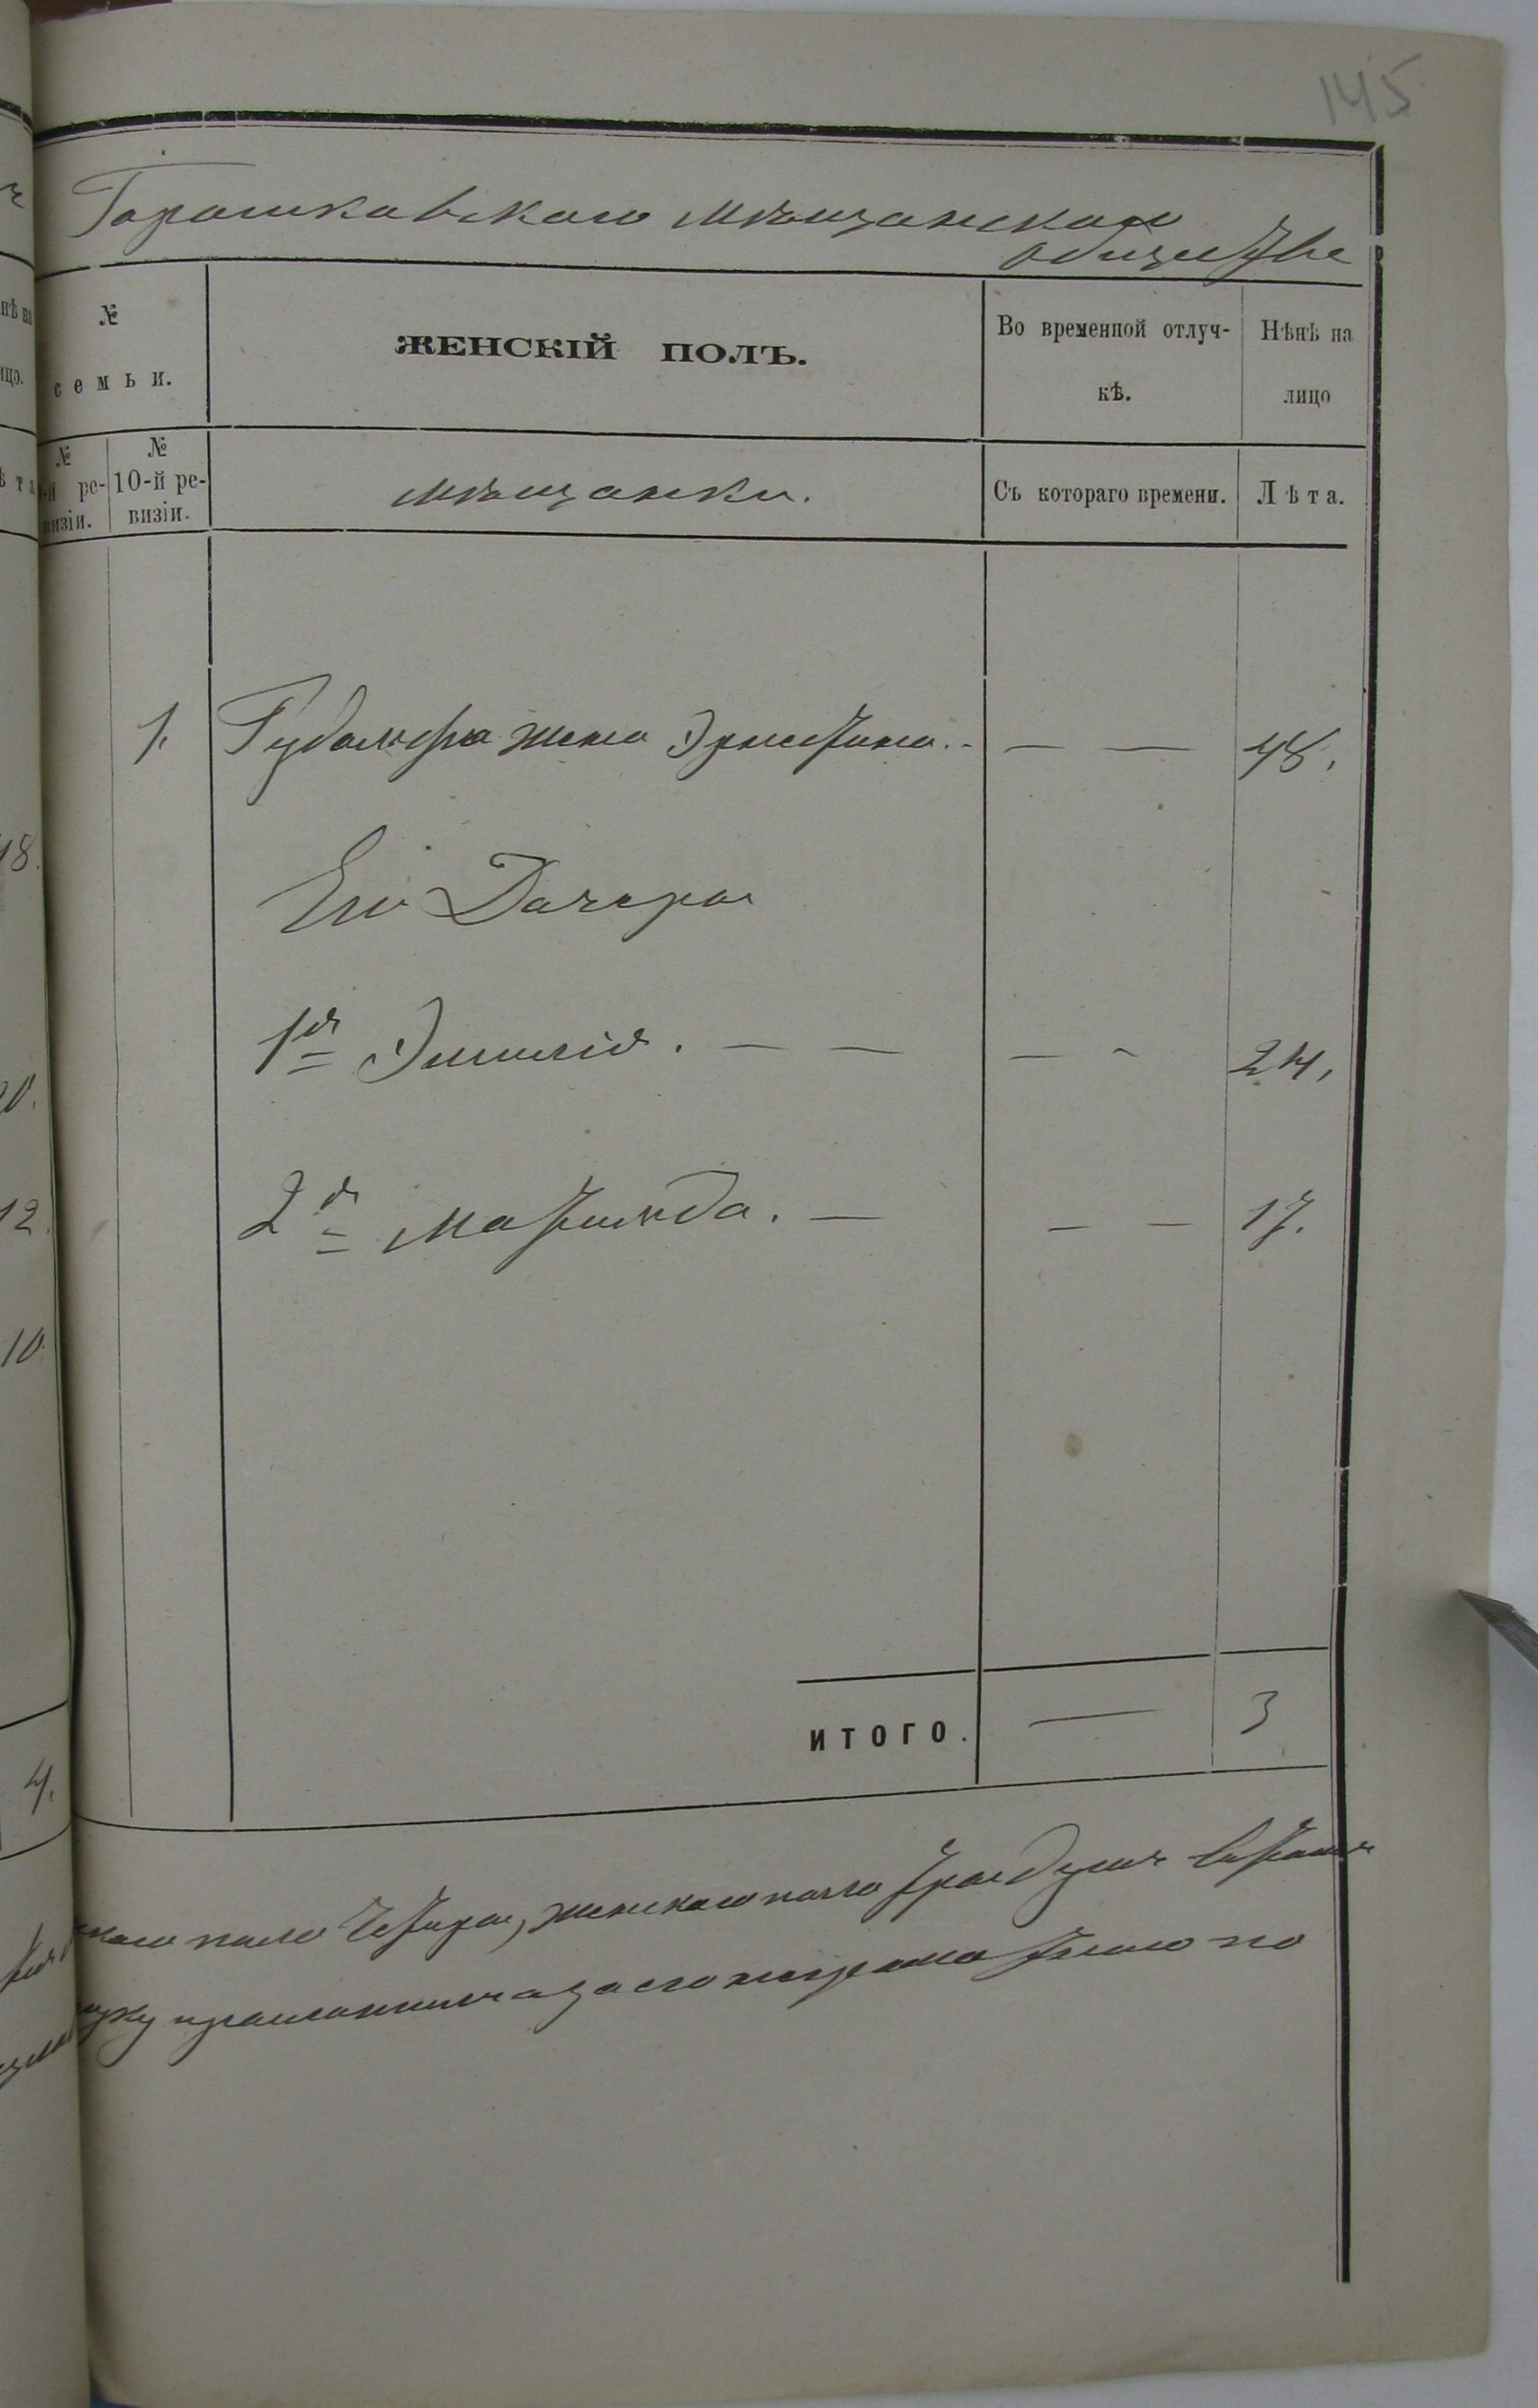 145
Горошковскаго мѣщанскаго
обществе
№
семьи.
ЖЕНСКІЙ ПОЛЪ.
Во временной отлуч-
кѣ.
Нѣнѣ на
лицо
№
-й ре-
визіи.
№
10-й ре-
визіи.
мѣщанки.
Съ котораго времени.
Лѣта.
1. Гудольфа жена Эрнестина. - — — 48.
Его Дочери
1я Эмилія. — — — - 24.
2я Матильда. — — — 17.
ИТОГО. — 3
скаго пола Четыре, женскаго пола Три души
по
18.
20.
12.
10.
4.